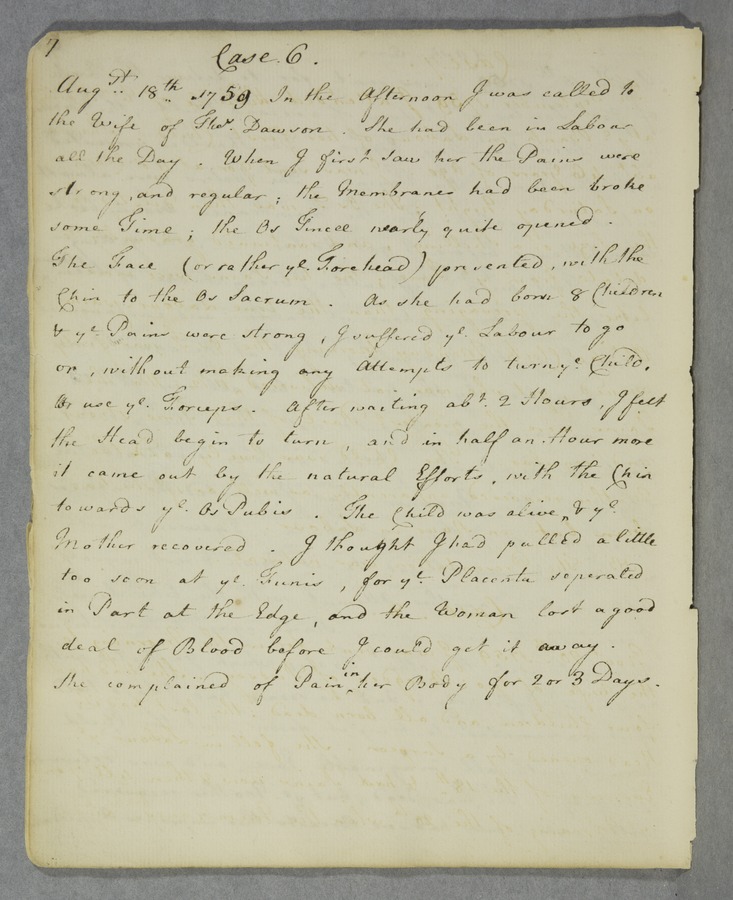 7
Case. 6.
Augst. 18th. 1759 In the Afternoon I was called to
the Wife of Thos. Dawson. She had been in Labour
all the Day. When I first saw her the Pains were
strong, and regular; the Membranes had been broke
some Time; the Os Tincæ nearly quite opened.
The Face (or rather ye. Forehead) presented, with the
Chin to the Os Sacrum. As she had born 8 Children
& ye. Pains were strong, I suffered ye. Labour to go
on, without making any Attempts to turn ye. Child,
or use ye. Forceps. After waiting abt. 2 Hours, I felt
the Head begin to turn, and in half an Hour more
it came out by the natural Efforts, with the Chin
towards ye. Os Pubis. The Child was alive, & ye.
Mother recovered. I thought I had pulled a little
too soon at ye. Funis, for ye. Placenta seperated
in Part at the Edge, and the Woman lost a good
deal of Blood before I could get it away.
She complained of Pain in her Body for 2 or 3 Days.